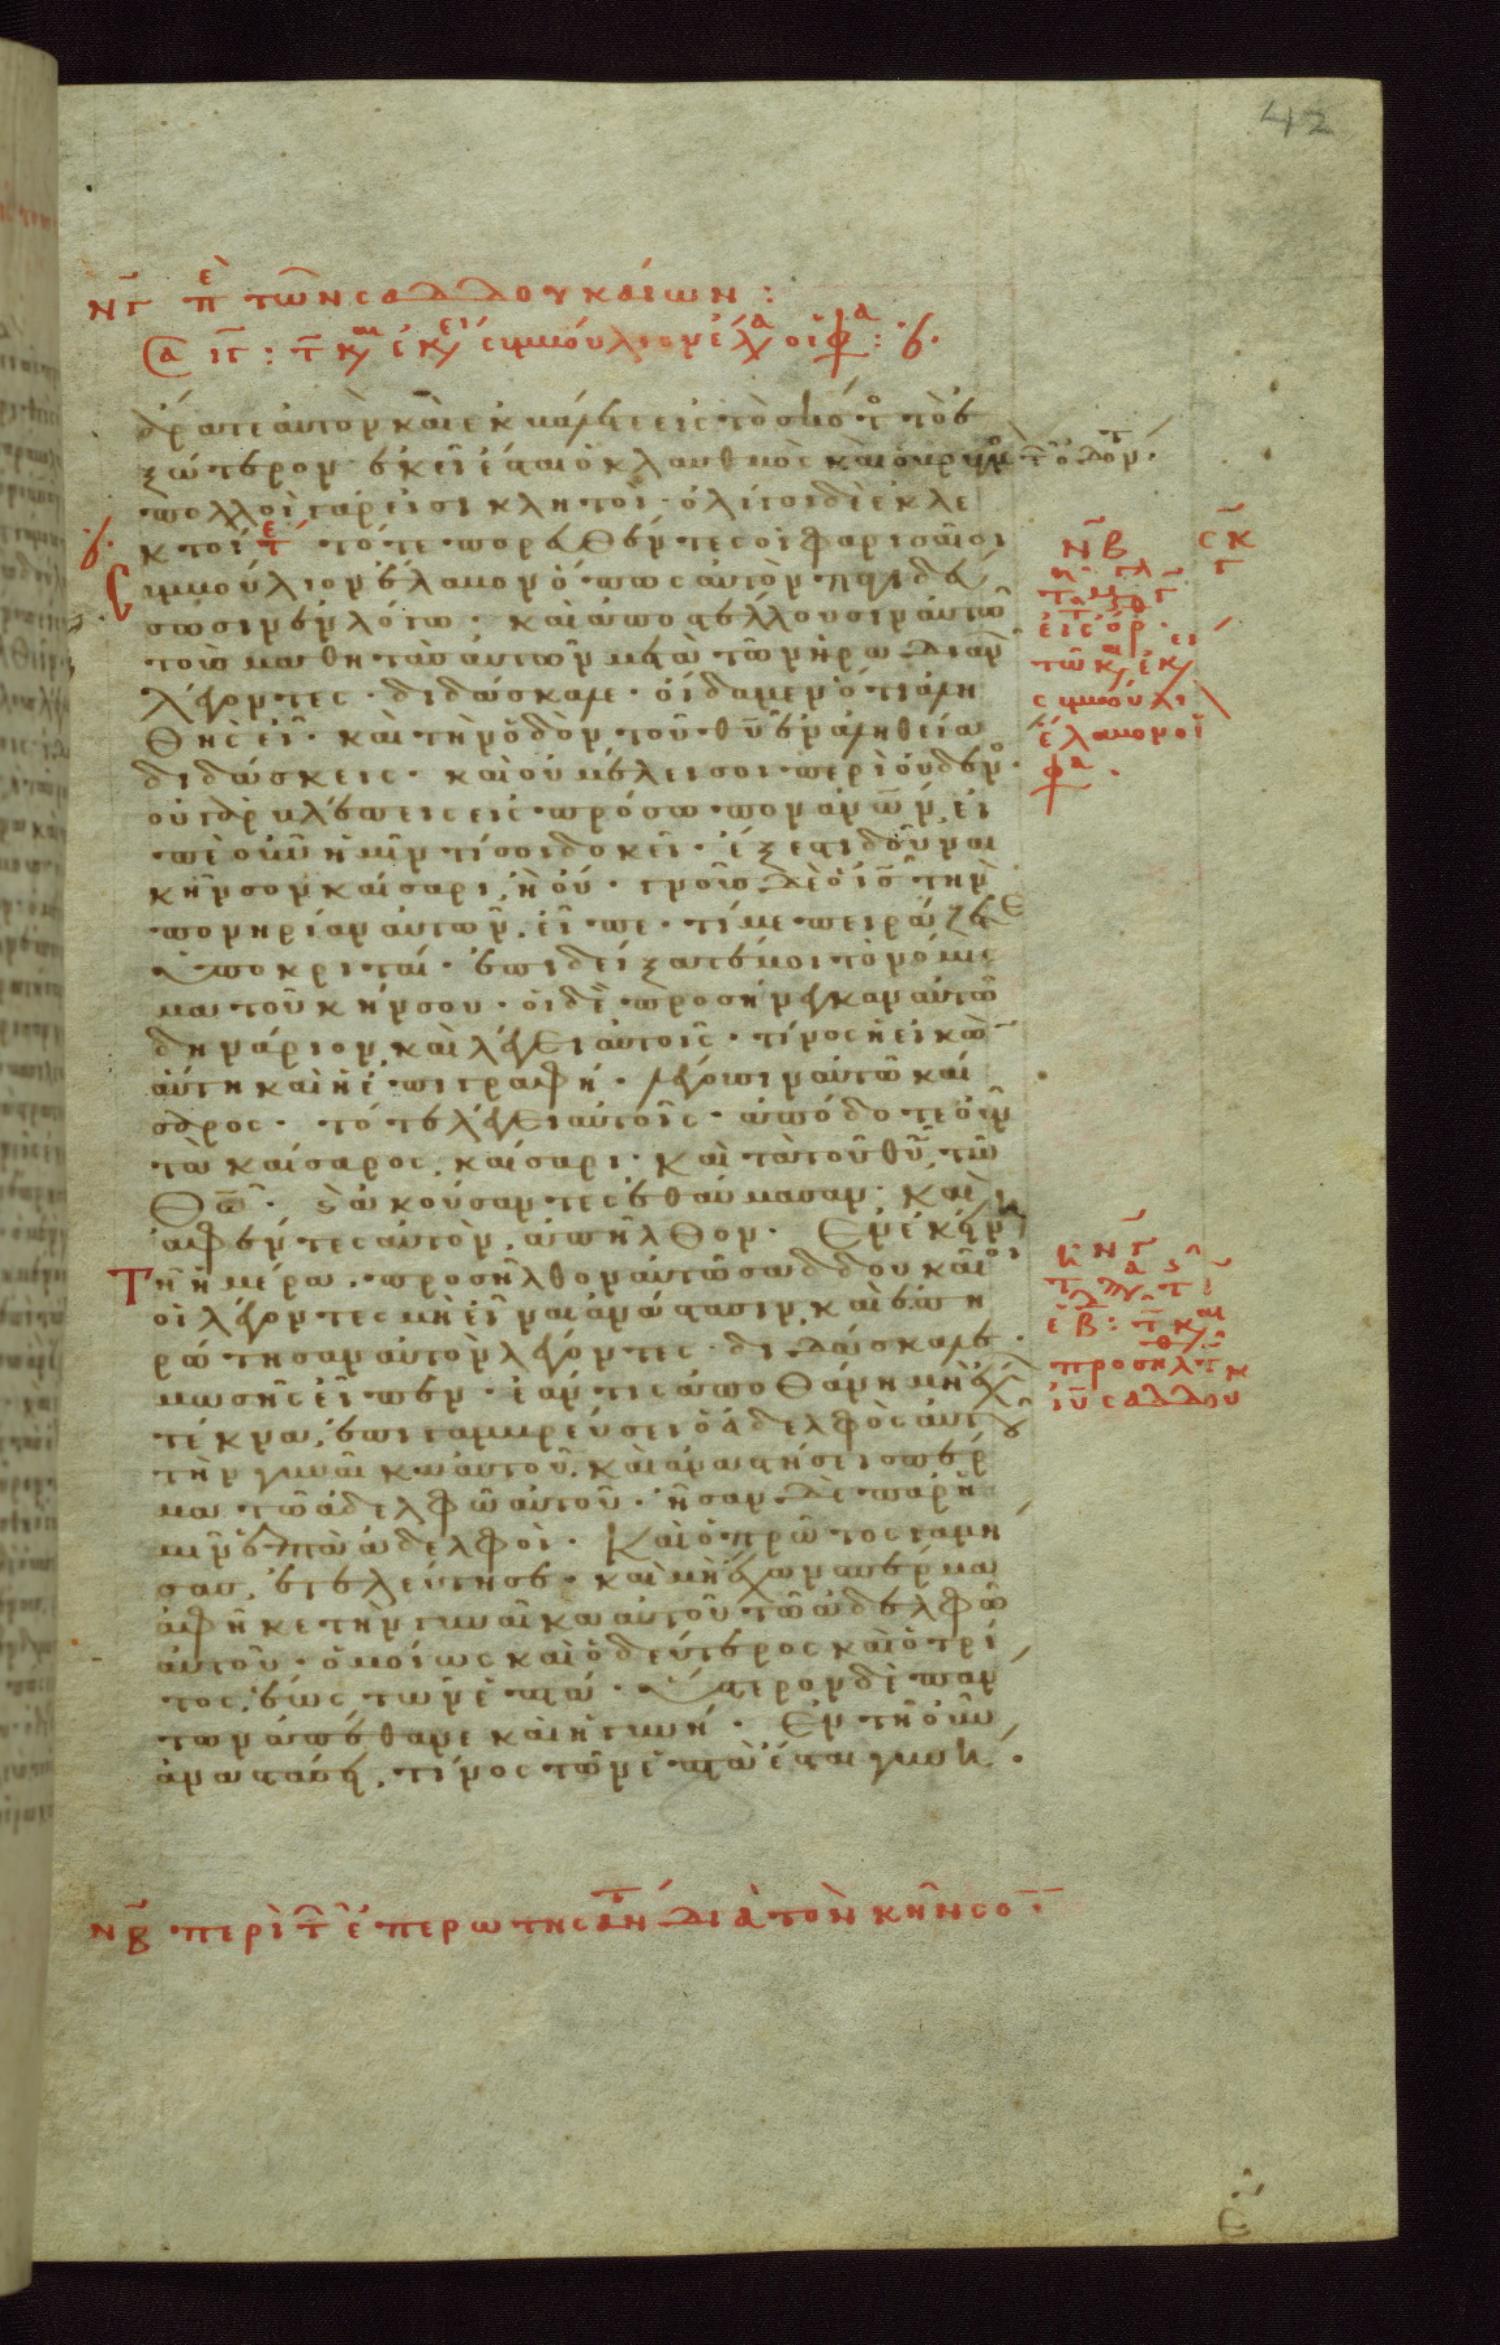 42
νγ π̅ε τῶν σαδδουκαίων :
ἄρατε αὐτὸν καὶ ἐκβάλετε εἰς τὸ σκότος τὸ ἐ
ξώτερον· ἐκεῖ ἔσται ὁ κλαυθμὸς καὶ ὁ βρυγμὸς τῶν ὀδόν
πολλοὶ γάρ εἰσι κλητοὶ· ὀλίγοι δὲ ἐκλε
κτοί τότε πορευθέντες οἱ φαρισαῖοι
συμβούλιον ἔλαβον ὅπως αὐτὸν παγιδεύ
σωσιν ἐν λόγω· καὶ ἀποστέλλουσιν αὐτῶ
τοὺς μαθητὰς αὐτῶν μετὰ τῶν ἡρωδιανῶν
λέγοντες· διδάσκαλε· οἴδαμεν ὅτι ἀλη
θὴς εἶ· καὶ τὴν ὁδὸν τοῦ θῡ ἐν ἀληθεία
διδάσκεις· καὶ οὐ μέλει σοι περὶ οὐδενὸς·
οὐ γὰρ βλέπεις εἰς πρόσωπον ἀνων, εἰ
πὲ οὖν ἡμῖν τί σοι δοκεῖ· ἔξεστι δοῦναι
κῆνσον καίσαρι, ἢ οὔ· γνοὺς δὲ ὁ ις τὴν
πονηρίαν αὐτῶν, εἶπε· τί με πειράζετε
ὑποκριταί· ἐπιδείξατέ μοι τὸ νόμισ
μα τοῦ κήνσου· οἱ δὲ προσήνεγκαν αὐτῶ
δηνάριον, καὶ λέγει αὐτοῖς· τίνος ἡ εἰκὼν
αὕτη καὶ ἡ ἐπιγραφή· λέγουσιν αὐτῶ καί
σαρος· τότε λέγει αὐτοῖς· ἀπόδοτε οὖν
τὰ καίσαρος, καίσαρι· καὶ τὰ τοῦ θῡ, τῶ
θω· καὶ ἀκούσαντες ἐθαύμασαν· καὶ
ἀφέντες αὐτὸν, ἀπῆλθον· Ἐν ἐκείνη
τῆ ἡμέρα, προσῆλθον αὐτῶ σαδδουκαῖοι
οἱ λέγοντες μὴ εἶναι ἀνάστασιν, καὶ ἐπη
ρώτησαν αὐτὸν λέγοντες· διδάσκαλε·
μωσῆς εἶπεν· ἐάν τις ἀποθάνη μὴ ἔχων
τέκνα, ἐπιγαμβρεύσει ὁ ἀδελφὸς αὐτοῦ
τὴν γυναῖκα αὐτοῦ, καὶ ἀναστήσει σπέρ
μα τῶ ἀδελφῶ αὐτοῦ· ἦσαν δὲ παρ' ἡ
μῖν ἑπτὰ ἀδελφοὶ· Καὶ ὁ πρῶτος γαμή
σας, ἐτελεύτησε· καὶ μὴ ἔχων σπέρμα
ἀφῆκε τὴν γυναῖκα αὐτοῦ τῶ ἀδελφῶ
αὐτοῦ· ὁμοίως καὶ ὁ δεύτερος καὶ ὁ τρί
τος, ἕως τῶν ἑπτά· ὕστερον δὲ πάν
των ἀπέθανε καὶ ἡ γυνή· Ἐν τῆ οὖν
ἀναστάσει, τίνος τῶν ἑπτὰ ἔσται γυνή·
νβ
σκ
γ
συμβούλι
ἔλαβον οἱ
νγ
προσηλτ
ιῡ σαδδου
νβ περὶ τ ἐπερωτησάντ διὰ τὸν κῆνσο